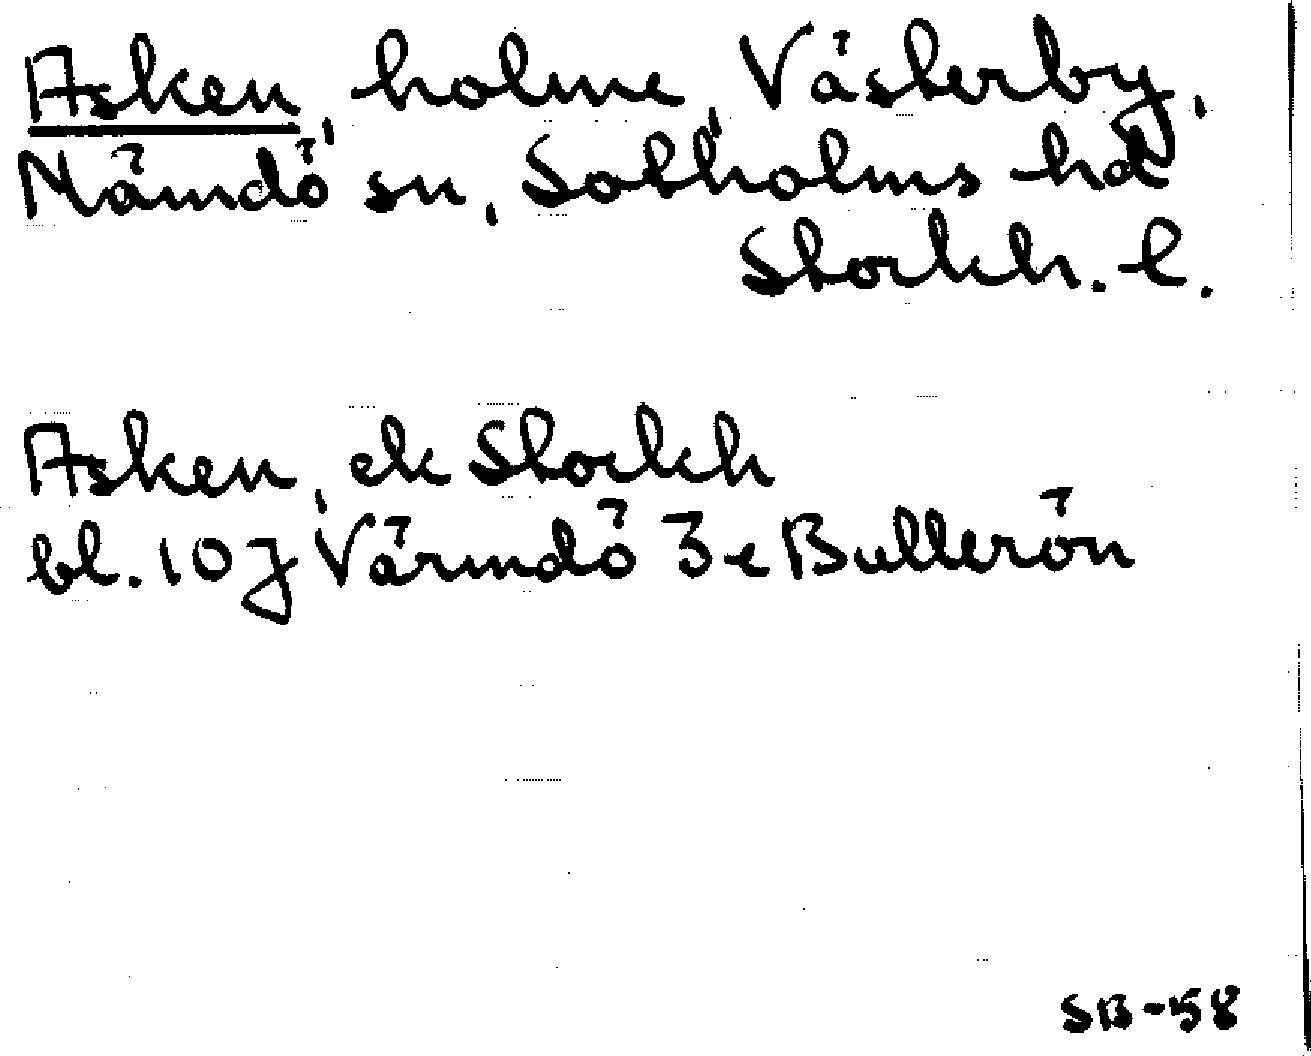 Asken, holme, Västerby,
Nämdö sn, Sotholms hd
Stockh. l.
Asken, ek Stockh
bl. 10J Värmdö 3e Bullerön
SB-58